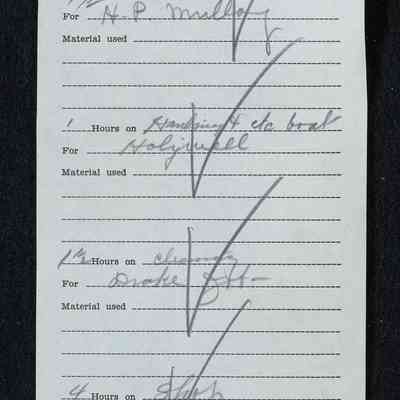 For H. P. Mulloy
Material used
1 Hours on Handling & etc boat
For Holywell
Material used
1 1/2 Hours on cleaning
For Drake
Material used
4 Hours on Shop